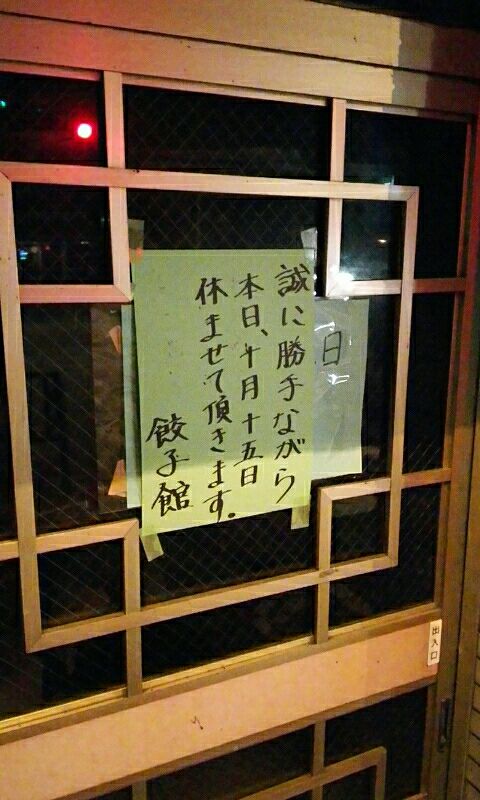 誠に勝手ながら
本日、十月十五日
休ませて頂きます。
餃子館
日
出入口